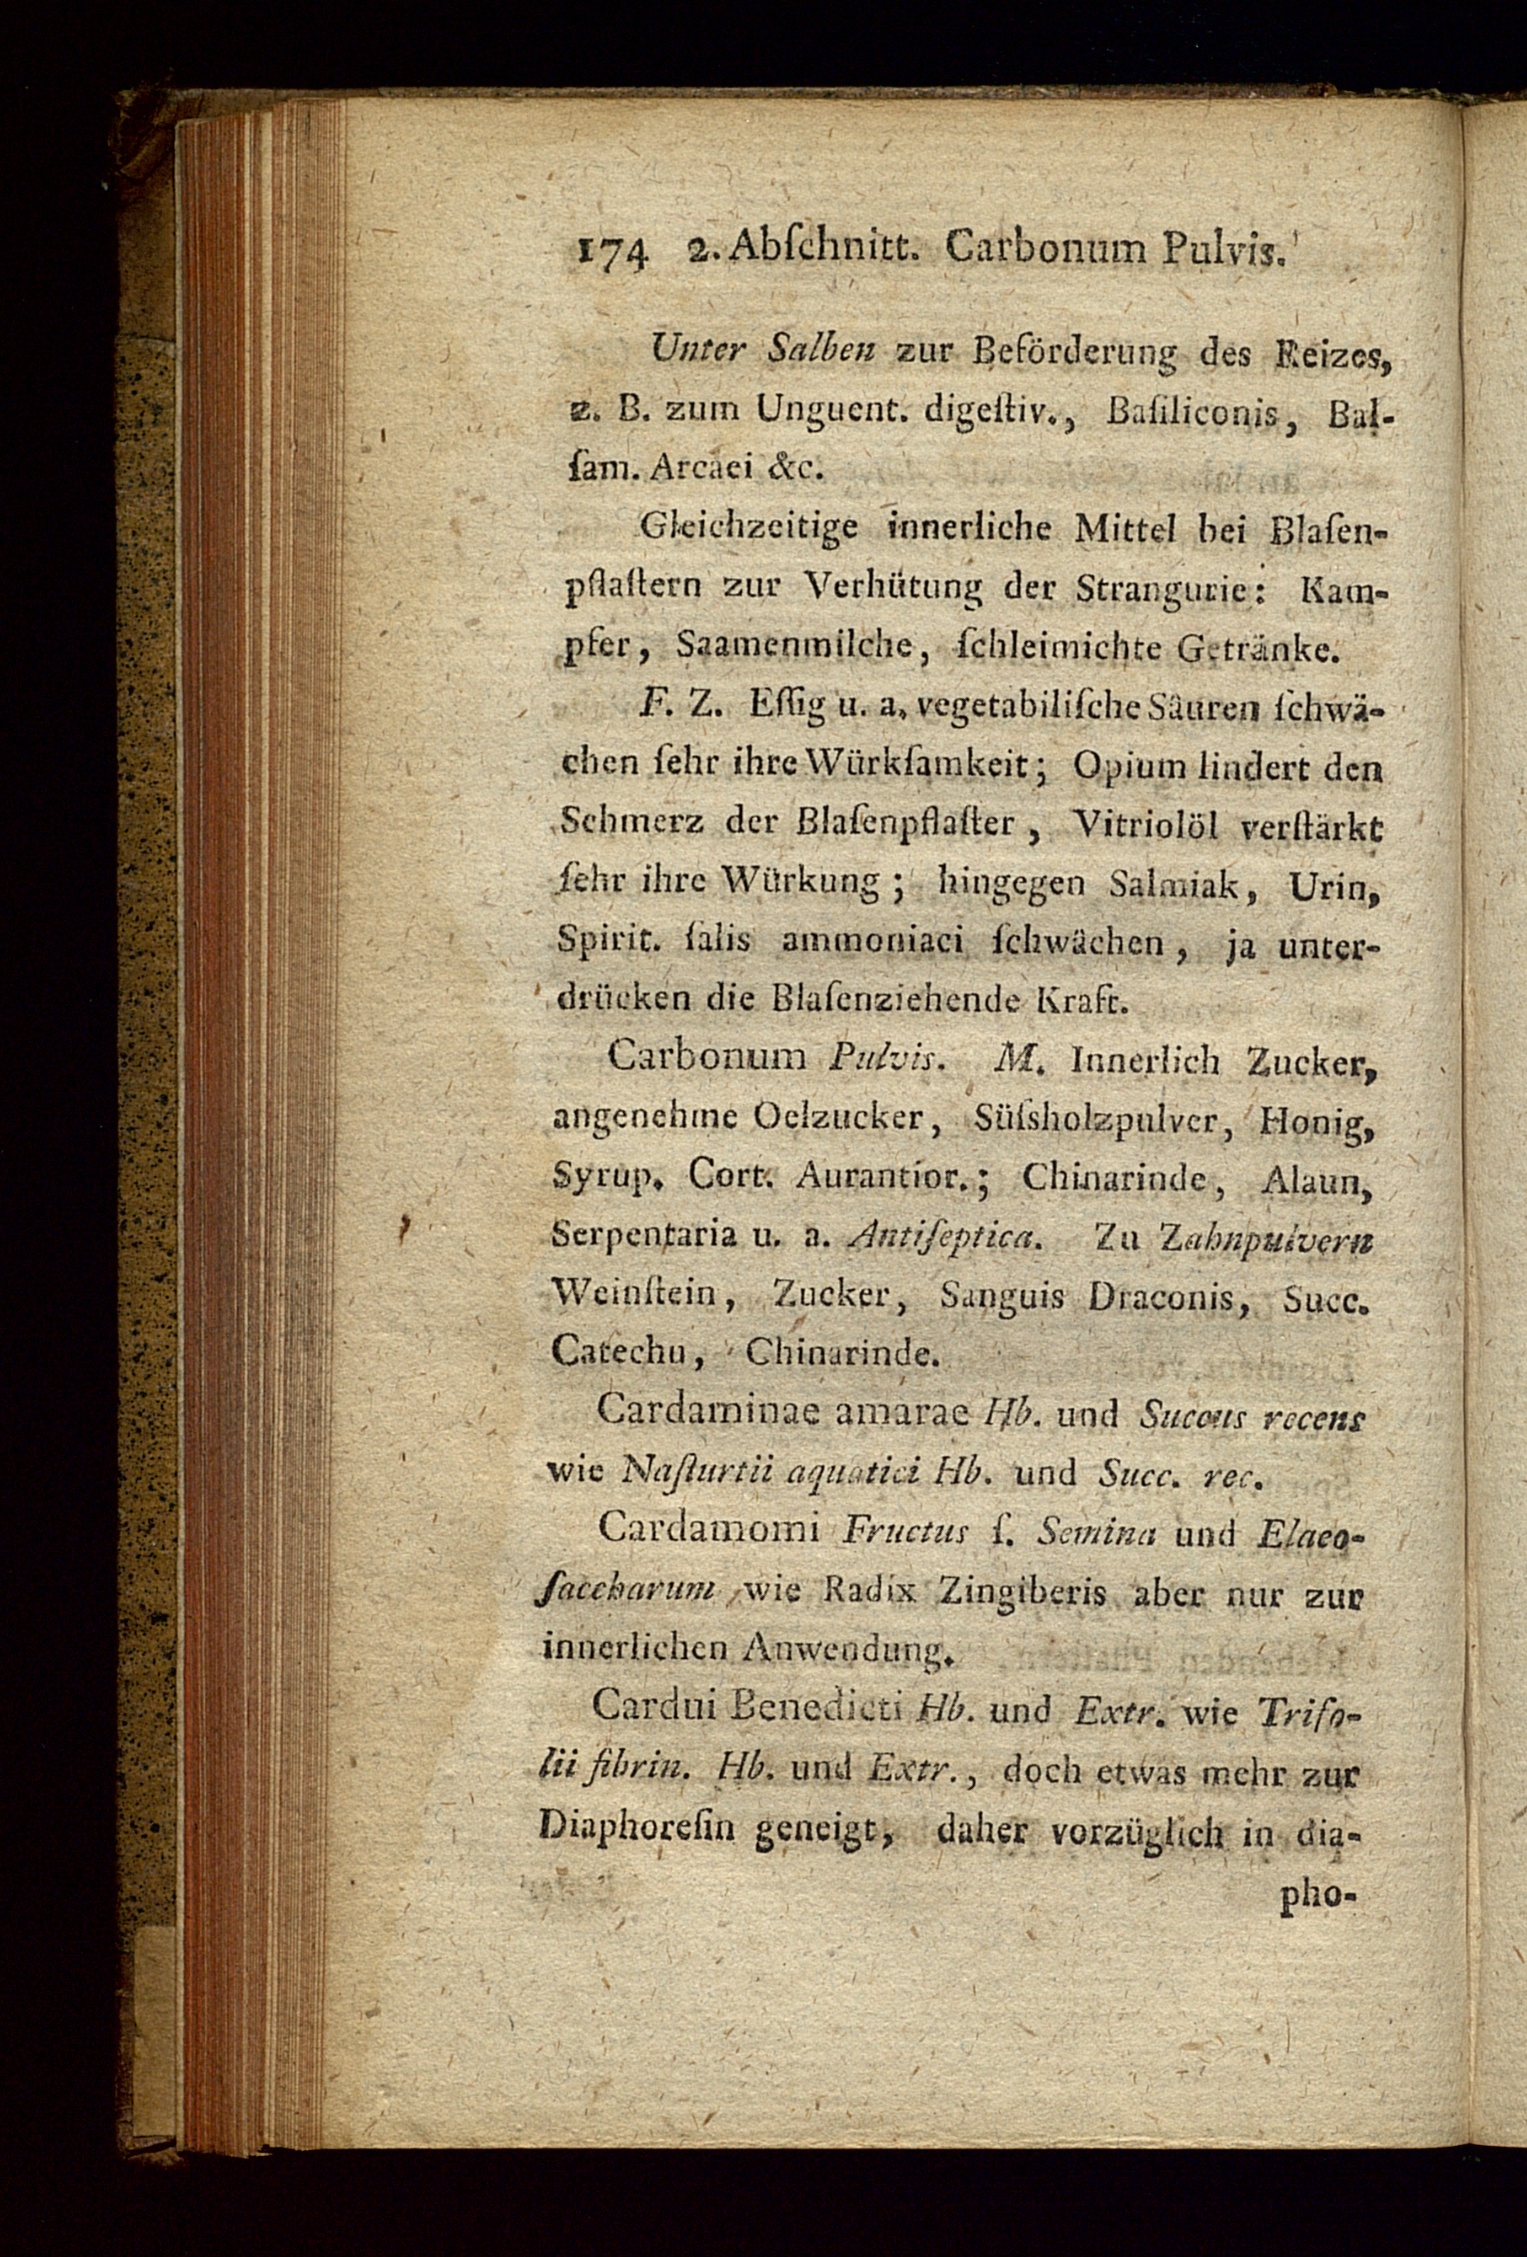 174 2. Abſchnitt. Carbonum Pulvis.
Unter Salben zur Beförderung des Reizes,
z. B. zum Unguent. digeſtiv., Baſiliconis, Bal-
ſam. Arcaei &c.
Gleichzeitige innerliche Mittel bei Blaſen-
pflaſtern zur Verhütung der Strangurie: Kam-
pfer, Saamenmilche, ſchleimichte Getränke.
F. Z. Eſſig u. a. vegetabiliſche Säuren ſchwä-
chen ſehr ihre Würkſamkeit; Opium lindert den
Schmerz der Blaſenpflaſter, Vitriolöl verſtärkt
ſehr ihre Würkung; hingegen Salmiak, Urin,
Spirit. ſalis ammoniaci ſchwächen, ja unter-
drücken die Blaſenziehende Kraft.
Carbonum Pulvis. M. Innerlich Zucker,
angenehme Oelzucker, Süſsholzpulver, Honig,
Syrup. Cort. Aurantior.; Chinarinde, Alaun,
Serpentaria u. a. Antiſeptica. Zu Zahnpulvern
Weinſtein, Zucker, Sanguis Draconis, Succ.
Catechu, Chinarinde.
Cardaminae amarae Hb. und Succus recens
wie Naſturtii aquatici Hb. und Succ. rec.
Cardamomi Fructus ſ. Semina und Elaeo-
ſaccharum wie Radix Zingiberis aber nur zur
innerlichen Anwendung.
Cardui Benedicti Hb. und Extr. wie Trifo-
lii fibrin. Hb. und Extr., doch etwas mehr zur
Diaphoreſin geneigt, daher vorzüglich in dia-
pho-